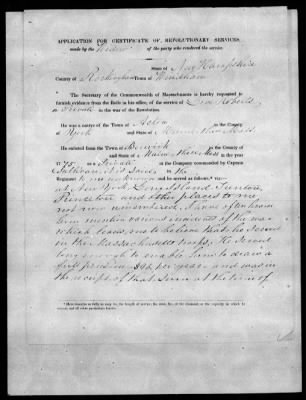 APPLICATION FOR CERTIFICATE OF REVOLUTIONARY SERVICES,
made by the Widow of the party who rendered the service.
State of New Hampshire
County of Rockingham Town of Windham
The Secretary of the Commonwealth of Massachusetts is requested to
furnish evidence from the Rolls in his office, of the service of Love Roberts
a Private in the war of the Revolution.
He was a native of the Town of in the County
of York and State of Maine then Mass
He enlisted from the Town of Berwick in the County
of and State of Maine then Mass in the year
1775 as a Private in the Company commanded by Captain
Sullivan in the
Regiment to me unknown and served as follows,* viz:—
at New York, Long Island, Trenton,
Princeton and other places to me
not now remembered. I have often heard
him mention various incidents of the war
which leads me to believe that he served
in the Massachusetts troops. He served
long enough to enable him to draw a
full pension, $96 per year and was in
the receipt of that sum at the time of
* Here describe as fully as may be, the length of service, the rank, &c. of the claimant, or the capacity in which he
served, and all other particulars known.